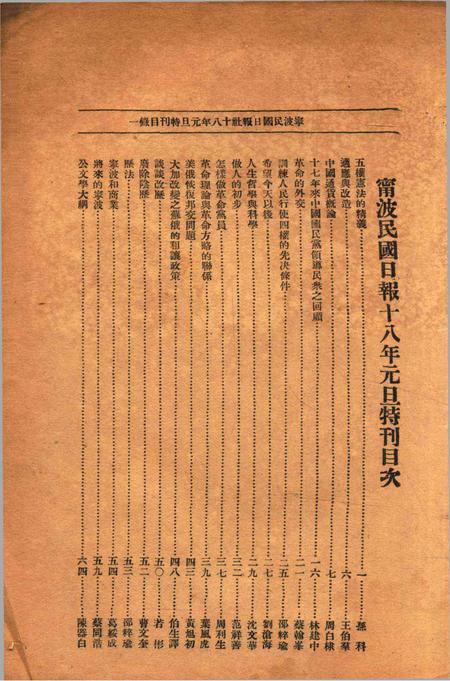 寧波民國日報社十八年元旦特刊目錄一
甯波民國日報十八年元旦特刊目次
五權憲法的精義……一 孫科
適應與改造……六 王伯羣
中國通貨概論……七 周白棣
十七年來中國國民黨領導民衆之回顧……一六 林建中
革命的外交……二一 蔡翰峯
訓練人民行使四權的先決條件……二五 邵梓瑜
希望今天以後……二七 劉滄海
人生哲學與科學……二九 沈文華
做人的初步……三二 范祥善
怎樣做革命黨員……三七 周利生
革命理論與革命方略的聯係……三九 葉風虎
美俄恢復邦交問題……四三 黃旭初
大加改變之蘇俄的租讓政策……四八 伯生譯
談談改歷……五〇 若彬
廢除陰歷……五二 曹文奎
歷法……五三 邵梓瑜
寧波和商業……五四 葛綏成
將來的寧波……五九 蔡同浩
公文學大綱……六四 陳器白